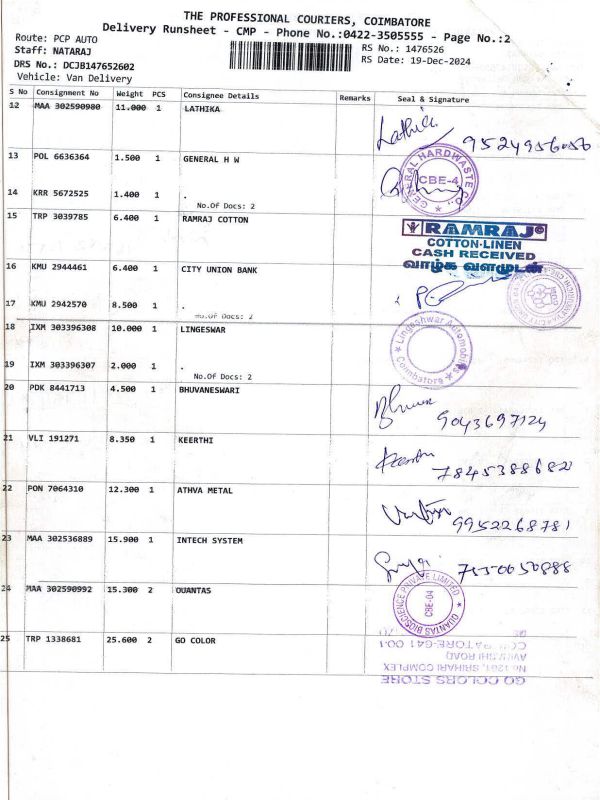 THE PROFESSIONAL COURIERS, COIMBATORE
Delivery Runsheet - CMP - Phone No.:0422-3505555 - Page No.:2
Route: PCP AUTO
Staff: NATARAJ
RS No.: 1476526
DRS No.: DCJB147652602
RS Date: 19-Dec-2024
Vehicle: Van Delivery
S No Consignment No Weight PCS Consignee Details Remarks Seal & Signature
12 MAA 302590980 11.000 1 LATHIKA
Lathika 9524956056
13 POL 6636364 1.500 1 GENERAL H W
GENERAL HARDWASTE CO. CBE-4
14 KRR 5672525 1.400 1 .
No.Of Docs: 2
15 TRP 3039785 6.400 1 RAMRAJ COTTON
RAMRAJ
COTTON-LINEN
CASH RECEIVED
வாழ்க வளமுடன்
16 KMU 2944461 6.400 1 CITY UNION BANK
17 KMU 2942570 8.500 1 .
No.Of Docs: 2
18 IXM 303396308 10.000 1 LINGESWAR
Lingeshwar Automobiles Coimbatore
19 IXM 303396307 2.000 1 .
No.Of Docs: 2
20 PDK 8441713 4.500 1 BHUVANESWARI
9043697124
21 VLI 191271 8.350 1 KEERTHI
7845388682
22 PON 7064310 12.300 1 ATHVA METAL
9952268781
23 MAA 302536889 15.900 1 INTECH SYSTEM
24 MAA 302590992 15.300 2 OUANTAS
QUANTAS BIOSCIENCE PRIVATE LIMITED CBE-04
25 TRP 1338681 25.600 2 GO COLOR
GO COLORS STORE
No 1261, SRIHARI COMPLEX